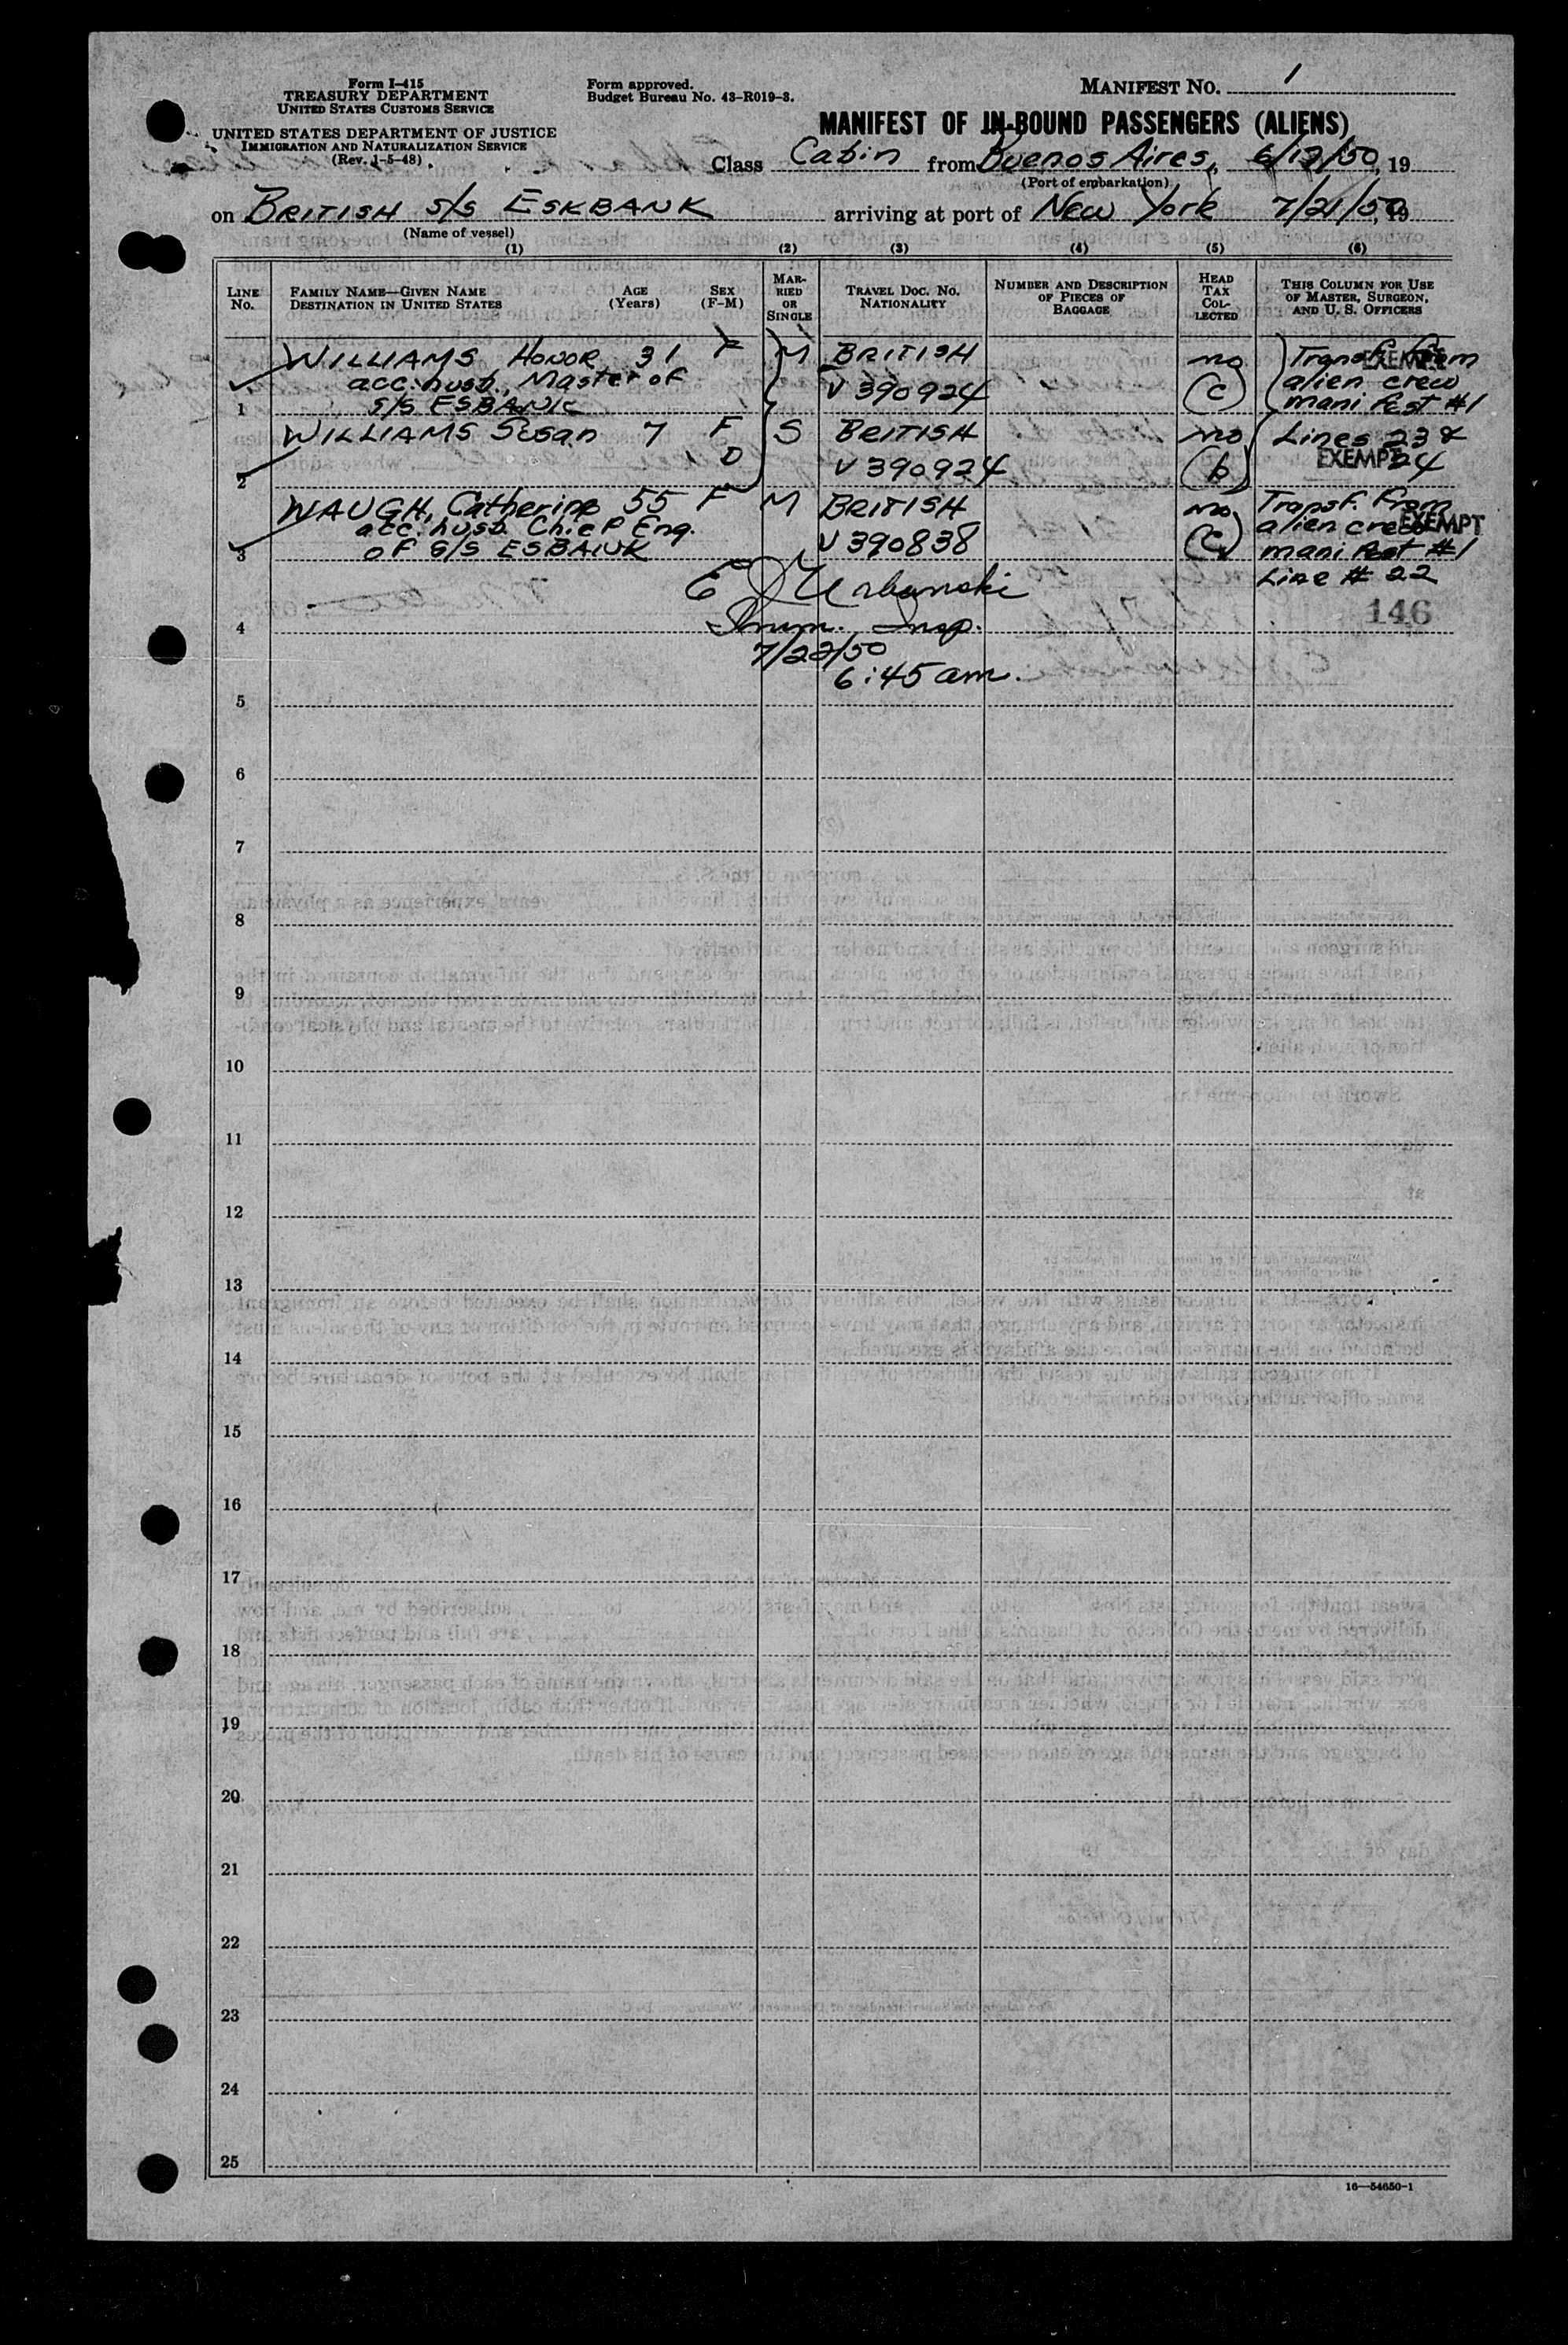 Form I-415
TREASURY DEPARTMENT
UNITED STATES CUSTOMS SERVICE
UNITED STATES DEPARTMENT OF JUSTICE
IMMIGRATION AND NATURALIZATION SERVICE
(Rev. 1-5-48)
Form approved.
Budget Bureau No. 43-R019-3.
MANIFEST NO. 1
MANIFEST OF IN-BOUND PASSENGERS (ALIENS)
Class Cabin from Buenos Aires, 6/19/50, 19
(Port of embarkation)
on BRITISH S/S ESKBANK arriving at port of New York 7/21/50, 19
(Name of vessel)
(1) (2) (3) (4) (5) (6)
LINE NO.
FAMILY NAME—GIVEN NAME
DESTINATION IN UNITED STATES
AGE (Years)
SEX (F-M)
MARRIED OR SINGLE
TRAVEL DOC. NO. NATIONALITY
NUMBER AND DESCRIPTION OF PIECES OF BAGGAGE
HEAD TAX COLLECTED
THIS COLUMN FOR USE OF MASTER, SURGEON, AND U. S. OFFICERS
WILLIAMS HONOR 31 F M BRITISH no Transf. from EXEMPT
acc. husb. Master of V 390924 (c) alien crew
1 S/S ESBANK manifest #1
WILLIAMS Susan 7 F S BRITISH no Lines 23 &
2 D V 390924 (b) EXEMPT 24
WAUGH, Catherine 55 F M BRITISH no Transf. from
acc. husb. Chief Eng. alien crew EXEMPT
3 of S/S ESBANK V 390838 (c) manifest #1
E J Urbanski Line # 22
4 Imm. Insp. 146
7/22/50
6:45 am.
5
6
7
8
9
10
11
12
13
14
15
16
17
18
19
20
21
22
23
24
25
16—54650-1